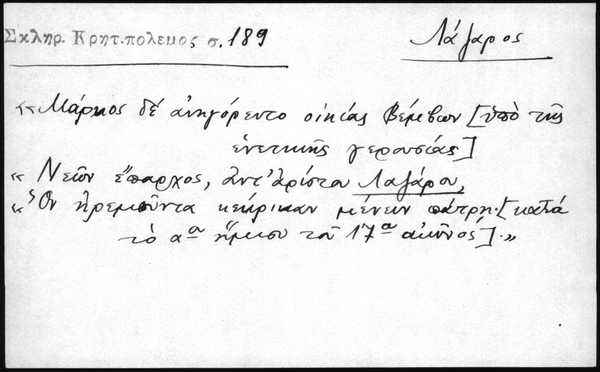 Σκληρ. Κρητ. πολεμος σ. 189
Λάζαρος
«Μάρκος δέ ἀνηγόρευτο οἰκίας Βέμβων [ὑπὸ τῆς
ἑνετικῆς γερουσίας]
« Νειῶν ἔπαρχος, ἀντ' ἀρίστα Λαζάρα,
« Ὃν ἠρεμοῦντα κέκρικαν μένειν πάτρῃ. [κατά
τὸ αον ἥμισυ τοῦ 17ου αἰῶνος].»